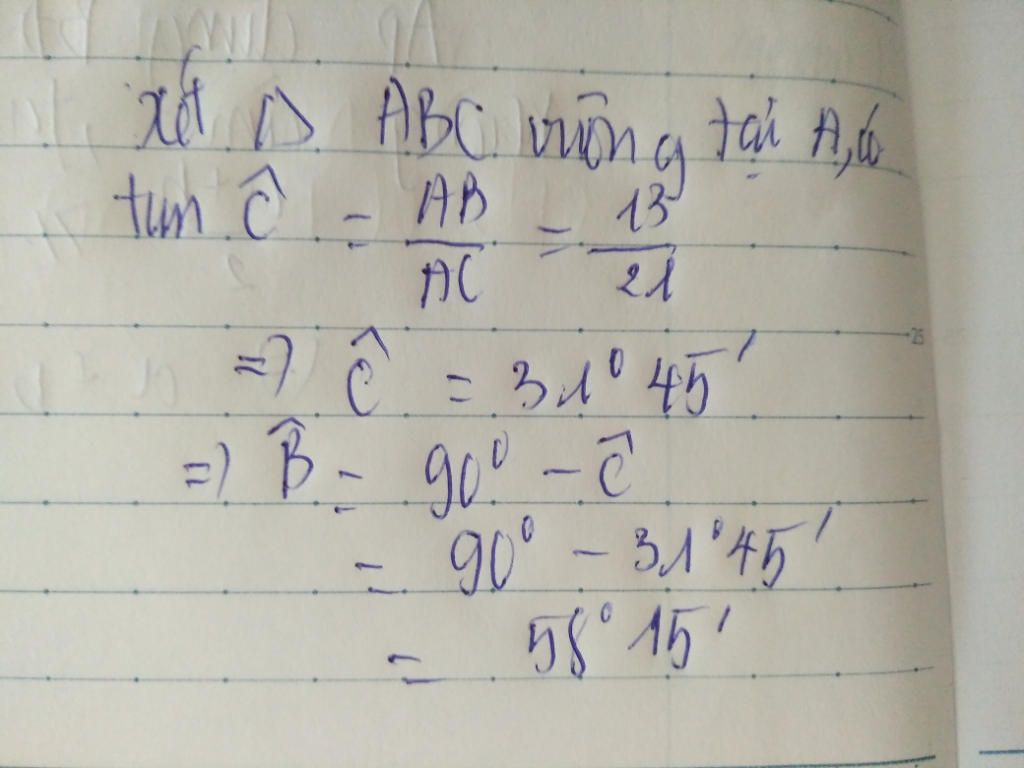 xét △ ABC vuông tại A, có
tan Ĉ = AB/AC = 13/21
=> Ĉ = 31° 45'
=> B̂ = 90° - Ĉ
= 90° - 31° 45'
= 58° 15'
25